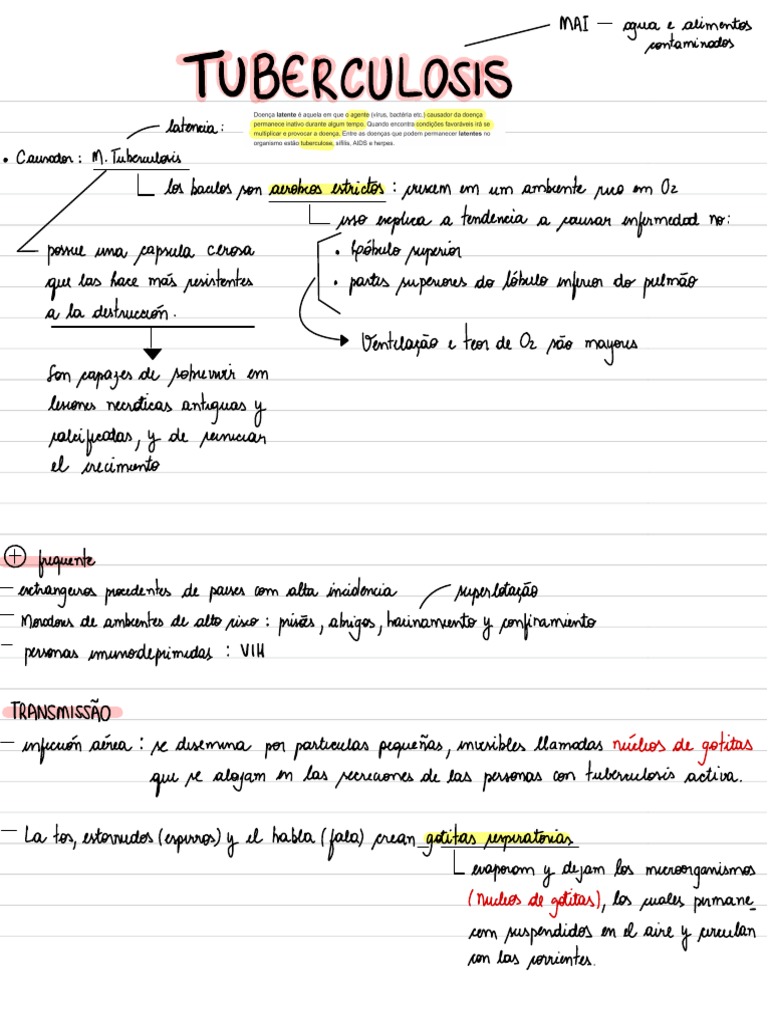 MAI — agua e alimentos
contaminados
TUBERCULOSIS
latencia:
Doença latente é aquela em que o agente (vírus, bactéria etc.) causador da doença
permanece inativo durante algum tempo. Quando encontra condições favoráveis irá se
multiplicar e provocar a doença. Entre as doenças que podem permanecer latentes no
organismo estão tuberculose, sífilis, AIDS e herpes.
• Causador: M. Tuberculosis
los bacilos son aerobios estrictos: crescem em um ambiente rico em O2
isso explica a tendencia a causar enfermedad no:
• lóbulo superior
• partes superiores do lóbulo inferior do pulmão
Ventilação e teor de O2 são mayores
possue una capsula cerosa
que las hace más resistentes
a la destrucción.
Son capazes de sobrevivir em
lesiones necróticas antiguas y
calcificadas, y de reiniciar
el crecimento
+ frequente
— extrangeiros procedentes de paises com alta incidencia
superlotação
— Moradores de ambientes de alto risco: prisões, abrigos, hacinamiento y confinamiento
— personas imunodeprimidas: VIH
TRANSMISSÃO
— infección aérea: se disemina por particulas pequeñas, invisibles llamadas núcleos de gotitas
que se alojam en las secreciones de las personas con tuberculosis activa.
— La tos, estornudos (espirros) y el habla (fala) crean gotitas respiratorias
evaporam y dejam los microorganismos
(nucleos de gotitas), los cuales permane_
cem suspendidos en el aire y circulan
con las corrientes.